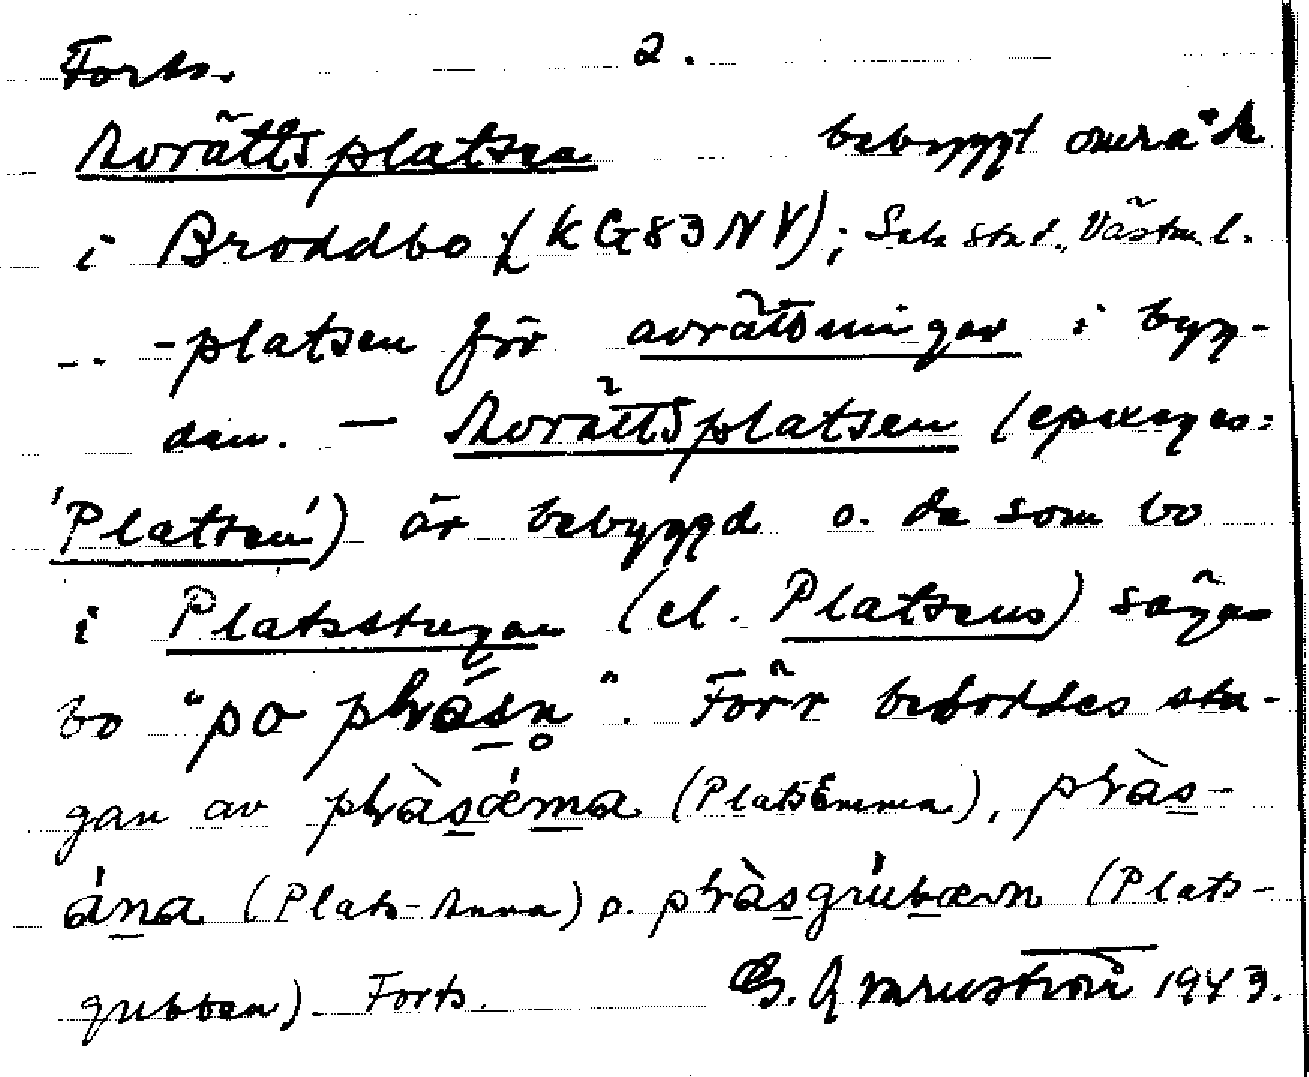 Forts. 2.
Avrättsplatsen bebyggt område
i Broddbo (KG83NV); Sala stad, Västm. l.
-platsen för avrättningar i byg-
den. — Avrättsplatsen (epexeges:
'Platsen') är bebyggd o. de som bo
i Platsstugan (el. Platsens) säges
bo "po plrásn". Förr beboddes stu-
gan av plràsǽma (PlatsEmma), plràs-
ána (Plats-Anna) o. plràsgrúbæn (Plats-
gubben). Forts. 1943.